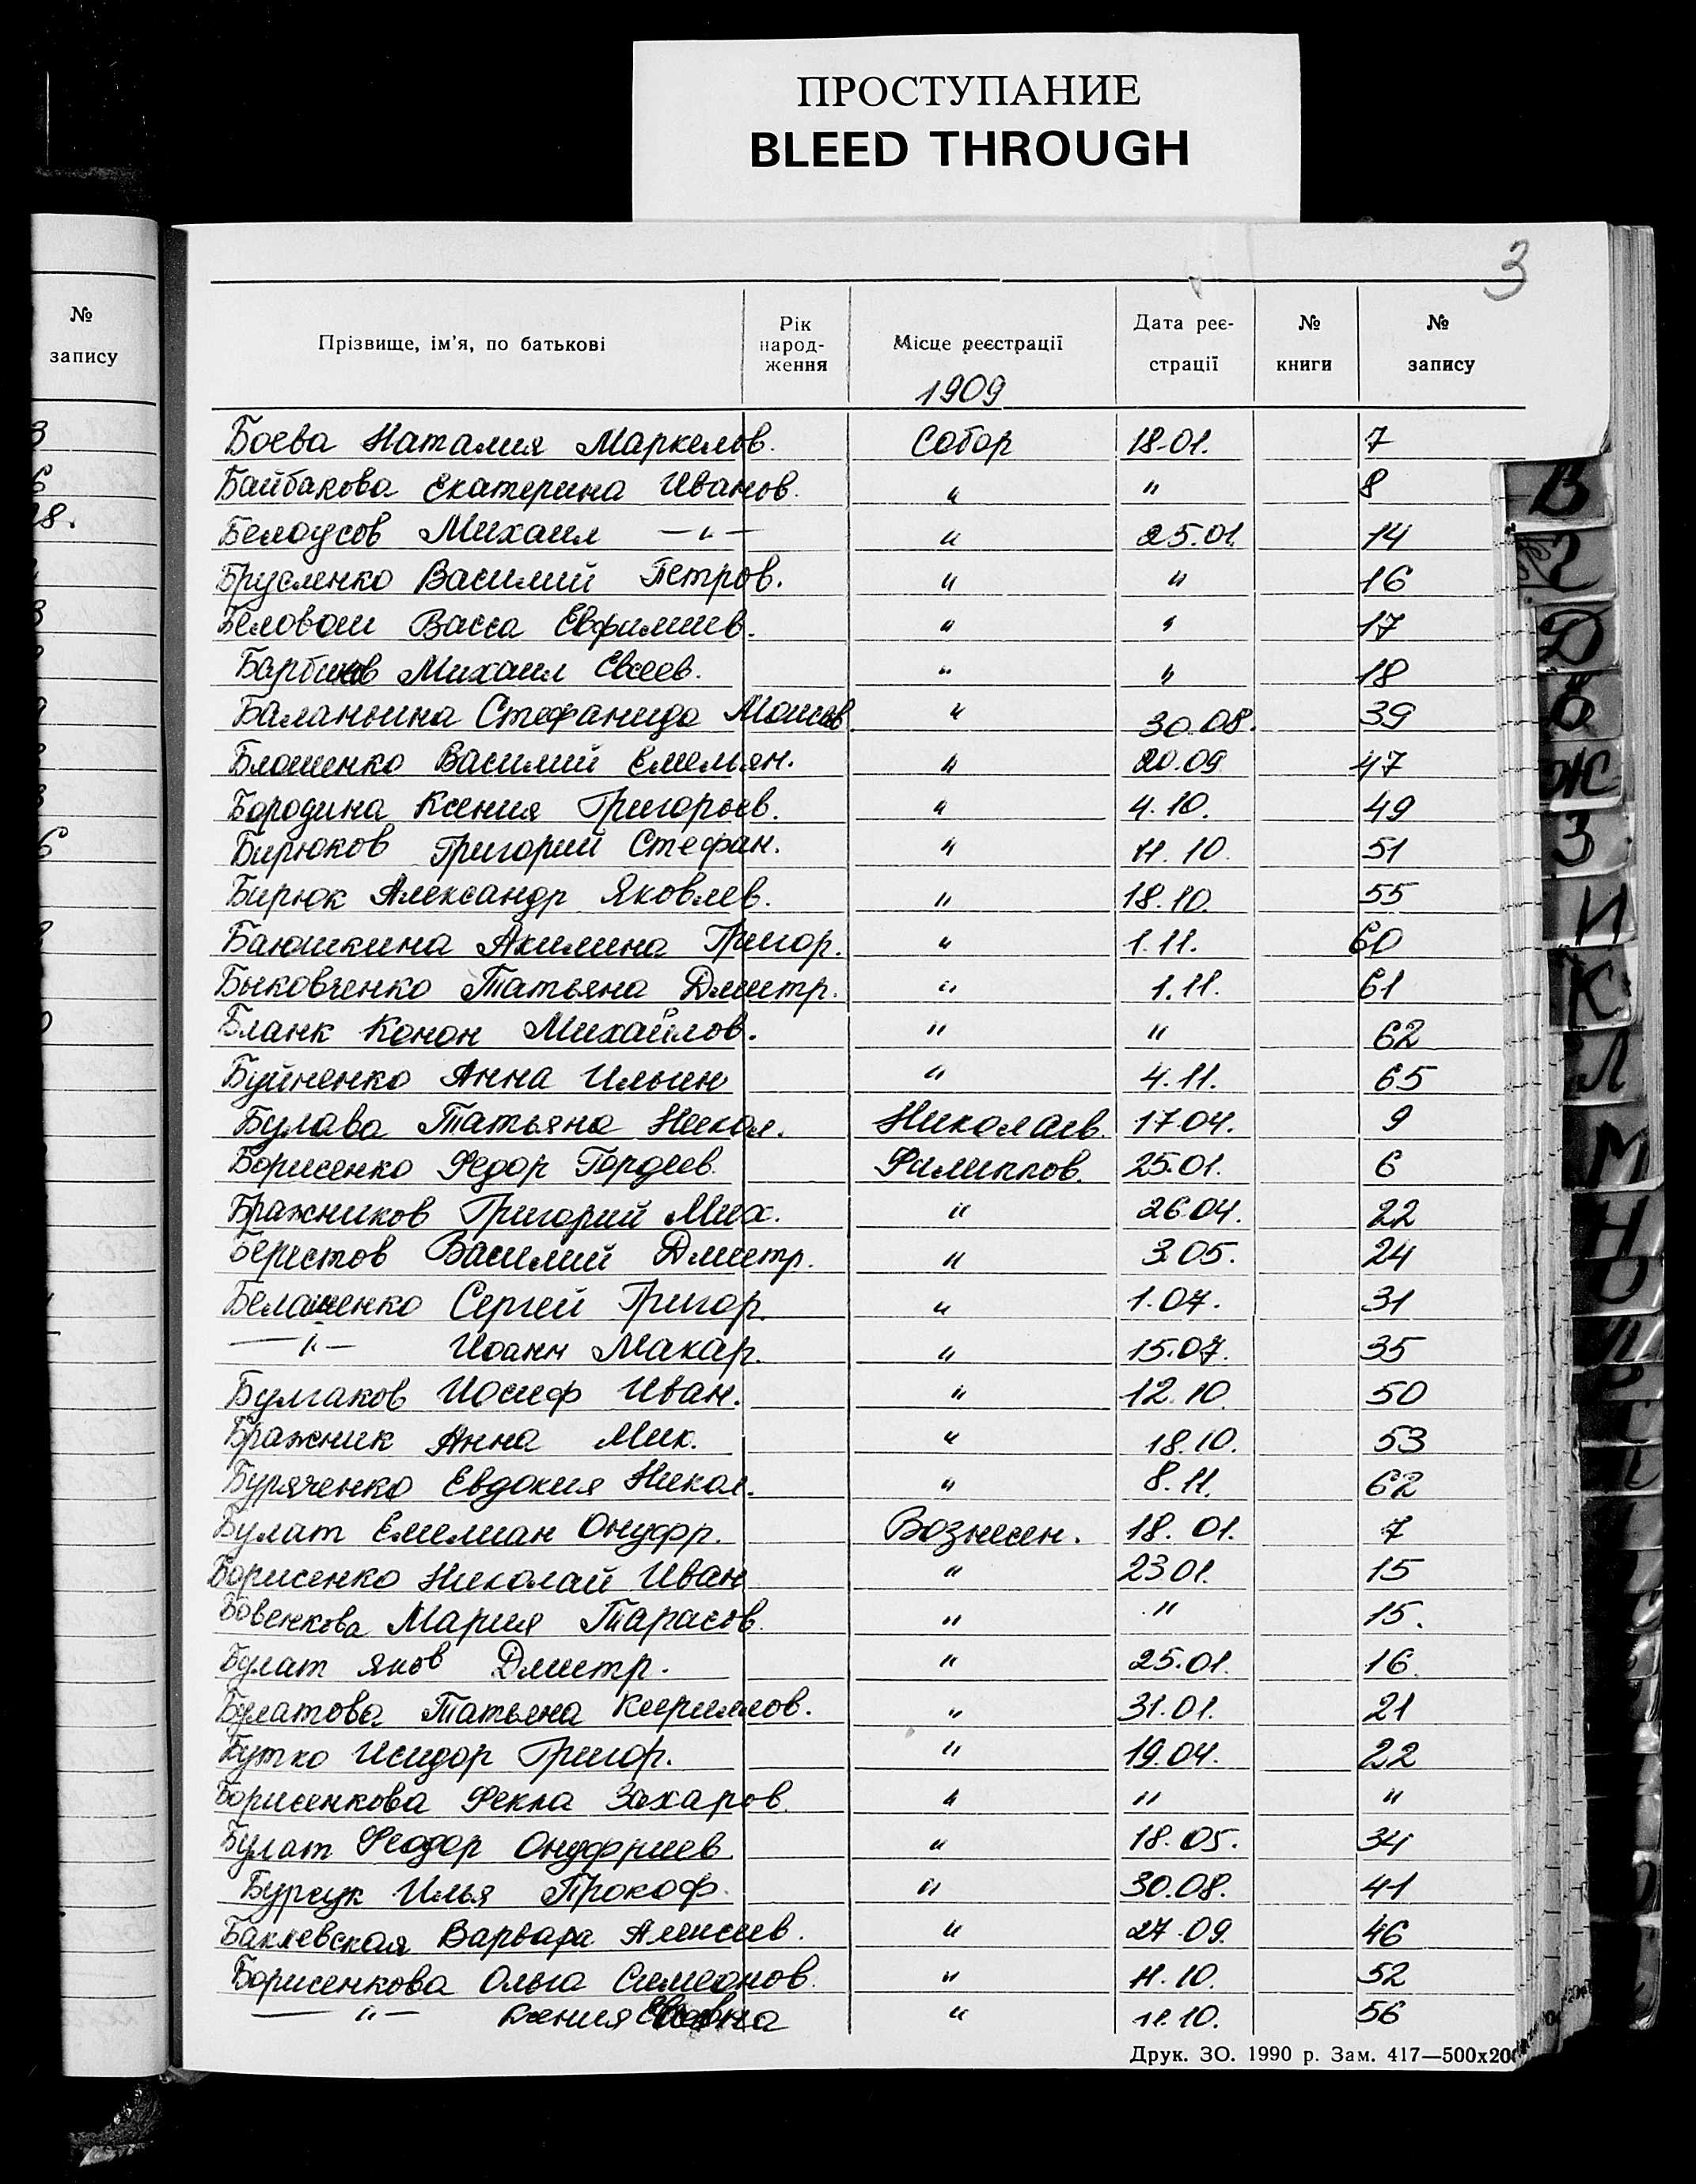 ПРОСТУПАНИЕ
BLEED THROUGH
3
№
запису
Прізвище, ім'я, по батькові Рік народ- ження Місце реєстрації Дата реє- страції № книги № запису
1909
Боева Наталия Маркелов. Собор 18.01. 7
Байбакова Екатерина Иванов. " " 8
Белоусов Михаил —"— " 25.01. 14
Брусленко Василий Петров. " " 16
Васса Евфимиев. " " 17
Михаил Евсеев. " " 18
Баланьина Стефанида Моисев. " 30.08. 39
Блошенко Василий Емельян. " 20.09 47
Бородина Ксения Григорьев. " 4.10. 49
Бирюков Григорий Стефан. " 11.10. 51
Бирюк Александр Яковлев. " 18.10. 55
Баюшкина Акилина Григор. " 1.11. 60
Быковченко Татьяна Дмитр. " 1.11. 61
Бланк Конон Михайлов. " " 62
Буйненко Анна Ильин " 4.11. 65
Булава Татьяна Никол. Николаев. 17.04. 9
Борисенко Федор Гордеев. Филиппов. 25.01. 6
Бражников Григорий Мих. " 26.04. 22
Берестов Василий Дмитр. " 3.05. 24
Белашенко Сергей Григор. " 1.07. 31
—"— Иоанн Макар. " 15.07. 35
Булгаков Иосиф Иван. " 12.10. 50
Бражник Анна Мих. " 18.10. 53
Буряченко Евдокия Никол. " 8.11. 62
Булат Емелиан Онуфр. Вознесен. 18.01. 7
Борисенко Николай Иван " 23.01. 15
Бовенкова Мария Тарасов. " " 15.
Булат Яков Дмитр. " 25.01. 16
Булатова Татьяна Кириллов. " 31.01. 21
Бутко Исидор Григор. " 19.04. 22
Борисенкова Фекла Захаров. " " "
Булат Феодор Онуфриев. " 18.05. 34
Бурсук Илья Прокоф. " 30.08. 41
Баклевская Варвара Алексеев. " 27.09. 46
Борисенкова Ольга Симеонов. " 11.10. 52
—"— Ксения " 11.10. 56
Друк. ЗО. 1990 р. Зам. 417—500х200
В
Г
Д
Ж
З
И
К
Л
М
Н